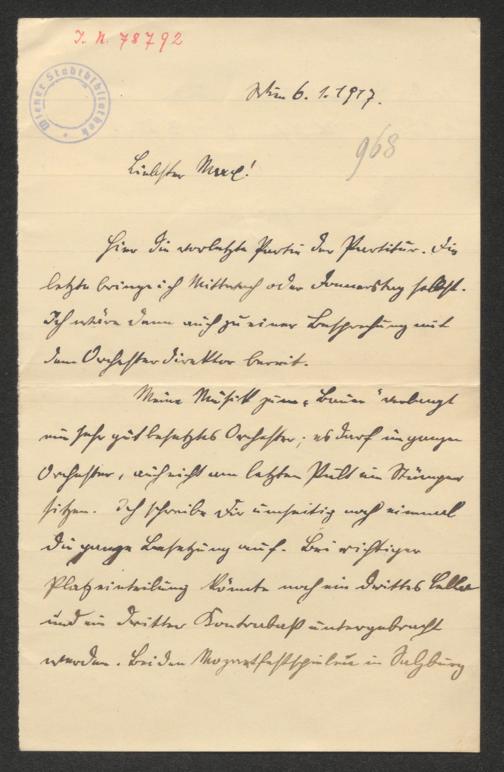 I. N. 78792
Wiener Stadtbibliothek
Wien 6. 1. 1917.
968
Liebster Max!
Hier die vorletzte Partie der Partitur. Die
letzte bringe ich Mittwoch oder Donnerstag selbst.
Ich wäre dann auch zu einer Besprechung mit
dem Orchesterdirektor bereit.
Meine Musik zum „Bauer" verlangt
ein sehr gut besetztes Orchester; es darf im ganzen
Orchester, auch nicht am letzten Pult ein Stümper
sitzen. Ich schreibe Dir umseitig noch einmal
die ganze Besetzung auf. Bei richtiger
Platzeinteilung könnte noch ein drittes Cello
und ein dritter Kontrabaß untergebracht
werden. Bei den Mozartfestspielen in Salzburg